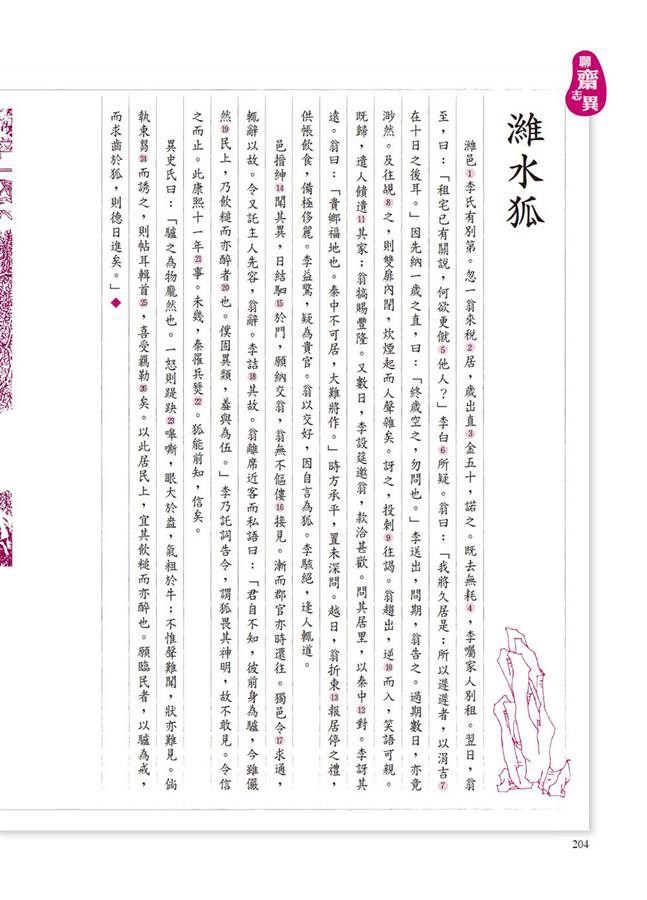 聊齋志異
濰水狐
濰邑1李氏有別第。忽一翁來稅2居，歲出直3金五十，諾之。既去無耗4，李囑家人別租。翌日，翁
至，曰：「租宅已有關說，何欲更僦5他人？」李白6所疑。翁曰：「我將久居是；所以遲遲者，以涓吉7
在十日之後耳。」因先納一歲之直，曰：「終歲空之，勿問也。」李送出，問期，翁告之。過期數日，亦竟
渺然。及往覘8之，則雙扉內閉，炊煙起而人聲雜矣。訝之，投刺9往謁。翁趨出，逆10而入，笑語可親。
既歸，遣人饋遺11其家；翁犒賜豐隆。又數日，李設筵邀翁，款洽甚歡。問其居里，以秦中12對。李訝其
遠。翁曰：「貴鄉福地也。秦中不可居，大難將作。」時方承平，置未深問。越日，翁折柬13報居停之禮，
供帳飲食，備極侈麗。李益驚，疑為貴官。翁以交好，因自言為狐。李駭絕，逢人輒道。
邑搢紳14聞其異，日結駟15於門，願納交翁，翁無不傴僂16接見。漸而郡官亦時還往。獨邑令17求通，
輒辭以故。令又託主人先容，翁辭。李詰18其故。翁離席近客而私語曰：「君自不知，彼前身為驢，今雖儼
然19民上，乃飲䭔而亦醉者20也。僕固異類，羞與為伍。」李乃託詞告令，謂狐畏其神明，故不敢見。令信
之而止。此康熙十一年21事。未幾，秦罹兵燹22。狐能前知，信矣。
異史氏曰：「驢之為物龐然也。一怒則踶趹23嗥嘶，眼大於盎，氣粗於牛；不惟聲難聞，狀亦難見。倘
執束芻24而誘之，則帖耳輯首25，喜受羈勒26矣。以此居民上，宜其飲䭔而亦醉也。願臨民者，以驢為戒，
而求齒於狐，則德日進矣。」◆
204